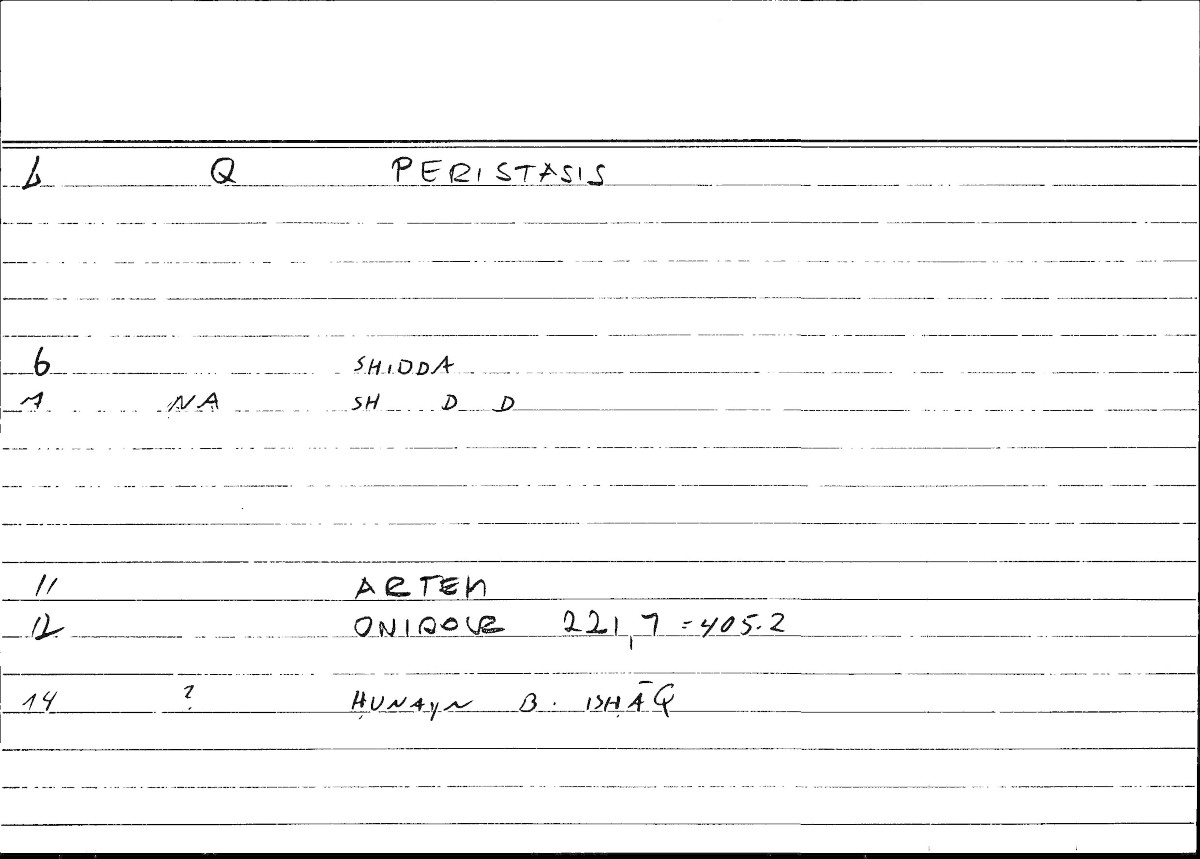 1 Q PERISTASIS
6 SHIDDA
7 NA SH D D
11 ARTEM
12 ONIROCR 221,7 = 405.2
14 ? ḤUNAYN B. ISḤĀQ